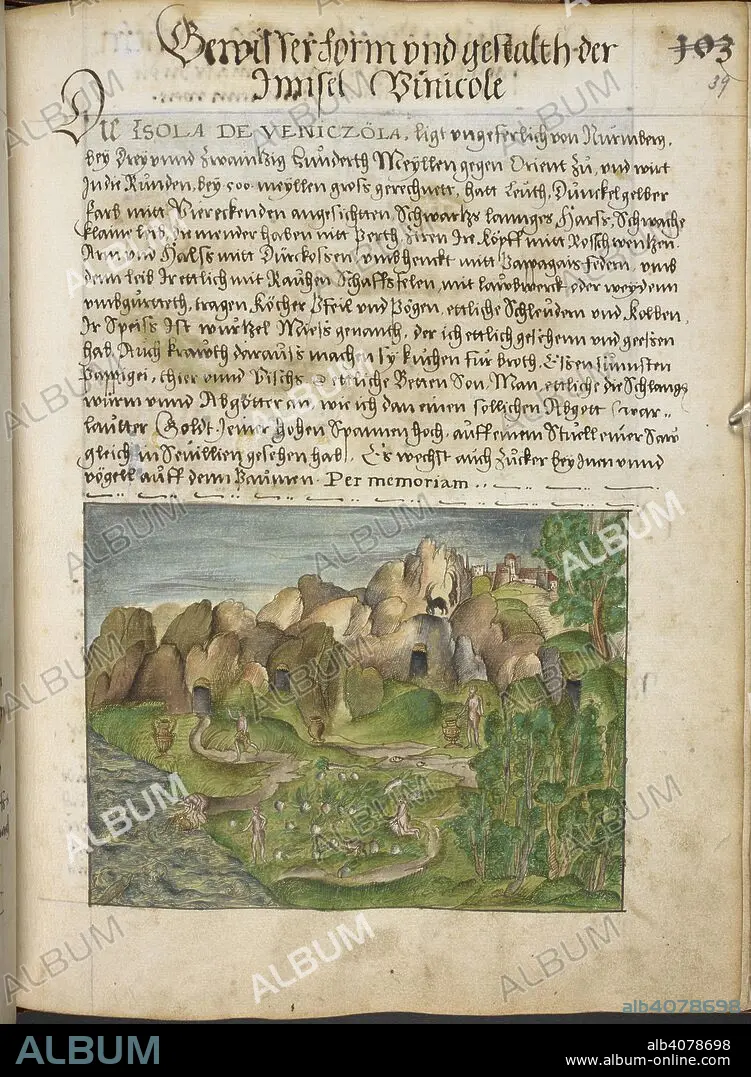 Gewisser form vnd gestalth der
Innsel Vinicole
103
39
Die ISOLA DE VENICZÖLA, ligt vngeferlich von Nürmberg,
bey Drey vnnd Zwaintzig Hunderth Meyllen gegen Orient zu, vnd wirt
In die Runden, bey 500 meyllen gross gerechnett, hatt Leuth, Dunckel gelber
farb mitt Viereckenden angesichtten, Schwartzs lannges Harss, Schwache
klaine leib, die mender haben nitt Perth Ziren Ire Köpff mitt Rosschwentzen
Arm vnd Halss mitt Dürckossen, vmbhenckt mitt Pappagais federn, vmb
denn leib Ir ettlich mit Rauhen Schaffsfelen, mit laubwerck oder weyden
vmbgürtteth, tragen Köcher Pfeil vnd Pögen, ettliche Schleudern vnd Kolben,
Ir Speiss Ist wurtzel Miess genanth, der ich ettlich gesehenn vnd geessen
hab, Auch krawth darauss machen sy kuchen für broth, Essen sunnsten
Pappigei, thier vnnd Vischs, ettliche Betten Son, Man, ettliche die Schlangs
würm vnnd Abgötter an, wie ich dan einen sollichen Abgott war
lautter Goldt Jener hohen Spannen hoch, auff einem Stuell einer Saw
gleich in Sevillien gesehen hab. Es wechst auch Zucker bey Inen vnnd
vögell auff denn Paumen. Per memoriam
ALBUM
alb4078698
ALBUM
alb4078698
www.album-online.com